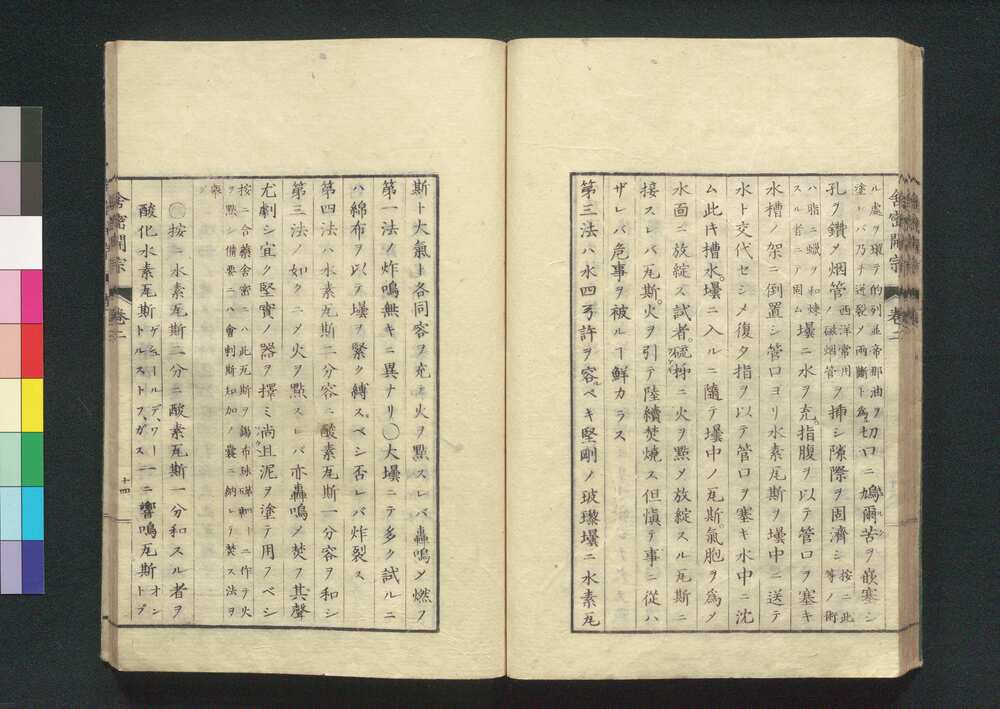 ル處ヲ環テ的列並帝那油ヲ
塗レバ乃チ迸裂ノ兩斷ト為ル切口ニ鳩爾苦ヲ嵌塞シ
孔ヲ鑽メ烟管西洋常用ノ磁烟管ヲ挿シ隙際ヲ固濟シ按ニ此等ノ術
ハ脂ニ蠟ヲ和煉スル者ニテ固ム壜ニ水ヲ充指腹ヲ以テ管口ヲ塞キ
水槽ノ架ニ倒置シ管口ヨリ水素瓦斯ヲ壜中ニ送テ
水ト交代セシメ復タ指ヲ以テ管口ヲ塞キ水中ニ沈
ム此時槽水壜ニ入ルニ隨テ壜中ノ瓦斯氣胞ヲ為メ
水面ニ放綻ス試者硫栁ニ火ヲ點メ放綻スル瓦斯ニ
接スレバ瓦斯火ヲ引テ陸續焚燒ス但愼テ事ニ從ハ
ザレバ危事ヲ被ルヿ鮮カラス
第三法ハ水四弓許ヲ容ルベキ堅剛ノ玻瓈壜ニ水素瓦
斯ト大氣ト各同容ヲ充ヱ火ヲ點スレバ轟鳴メ燃フ
第一法ノ炸鳴無キニ異ナリ〇大壜ニテ多ク試ルニ
ハ綿布ヲ以テ壜ヲ緊ク縛スベシ否レバ炸裂ス
第四法ハ水素瓦斯二分容ニ酸素瓦斯一分容ヲ和シ
第三法ノ如クニメ火ヲ點スレバ亦轟鳴メ焚フ其聲
尤劇シ宜ク堅實ノ器ヲ擇ミ尚且泥ヲ塗テ用フベシ
按ニ合藥舍密ニハ此瓦斯ヲ錫布珠礎ニ作テ火
ヲ點シ備要ニハ會刺斯知加ノ囊ニ納レテ焚ス法ヲ
〇按ニ水素瓦斯二分ニ酸素瓦斯一分和スル者ヲ
酸化水素瓦斯ゲシュールデ、ワートルストフ、ガスー二響鳴瓦斯オントプ
舍密開宗
卷二
十四
舍密開宗
卷二